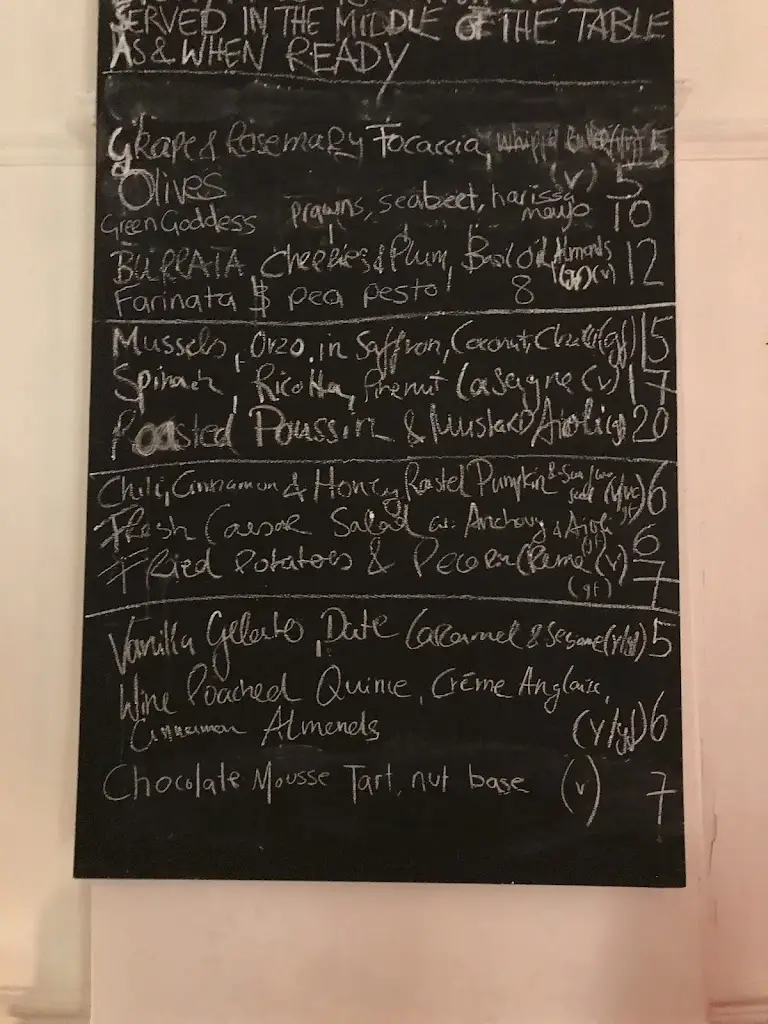 SERVED IN THE MIDDLE of THE TABLE
AS & WHEN READY
Grape & Rosemary Focaccia, Whipped Butter 5
Olives (v) 5
Green Goddess prawns, seabeet, harissa mayo 10
BURRATA, Cherries & Plum, Basil Oil, Almonds (gf)(v) 12
Farinata & pea pesto 8
Mussels, Orzo, in Saffron, Coconut, Chilli (gf) 15
Spinach, Ricotta, Lasagne (v) 17
Roasted Poussin & Mustard Aioli 20
Chili, Cinnamon & Honey Roasted Pumpkin & seeds 6
Fresh Caesar Salad w. Anchovy & Aioli gf 6
Fried Potatoes & Pecorin Creme (v) (gf) 7
Vanilla Gelato, Date Caramel & Sesame (v/gf) 5
Wine Poached Quince, Crème Anglaise,
Cinnamon Almonds (v/gf) 6
Chocolate Mousse Tart, nut base (v) 7